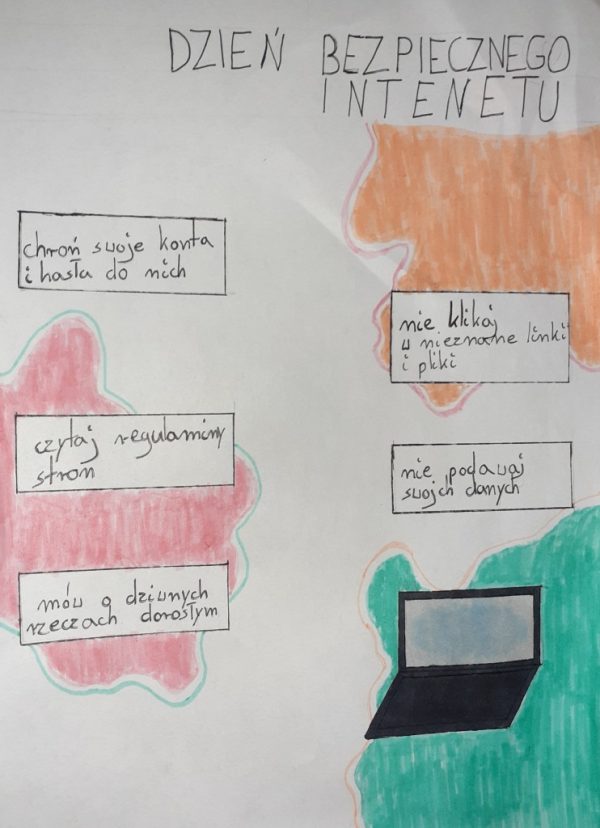 DZIEŃ BEZPIECZNEGO
INTENETU
chroń swoje konta
i hasła do nich
nie klikaj
w nieznane linki
i pliki
czytaj regulaminy
stron
nie podawaj
swojch danych
mów o dziwnych
rzeczach dorosłym